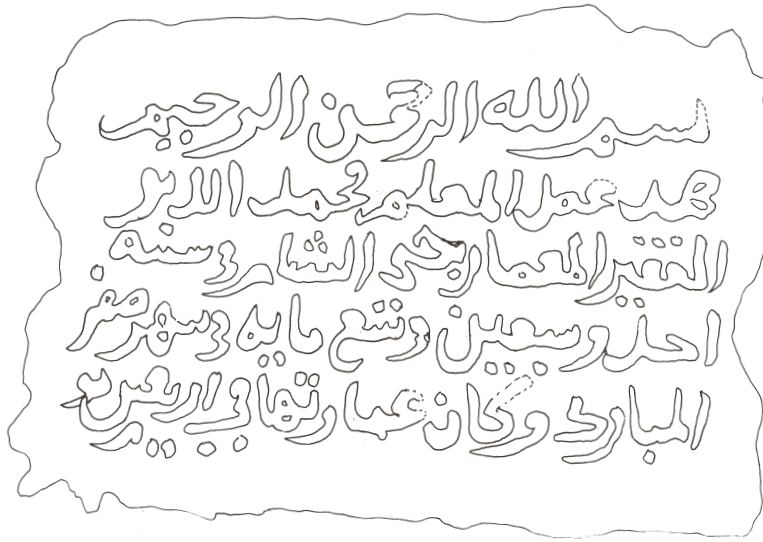 بسم الله الرحمن الرحيم
هد عمل المعلم محمد
الفقير المعمار سنه
احد وسبعين وتسع مايه وشهر صفر
المبارك وكان عمارتها في اربعين